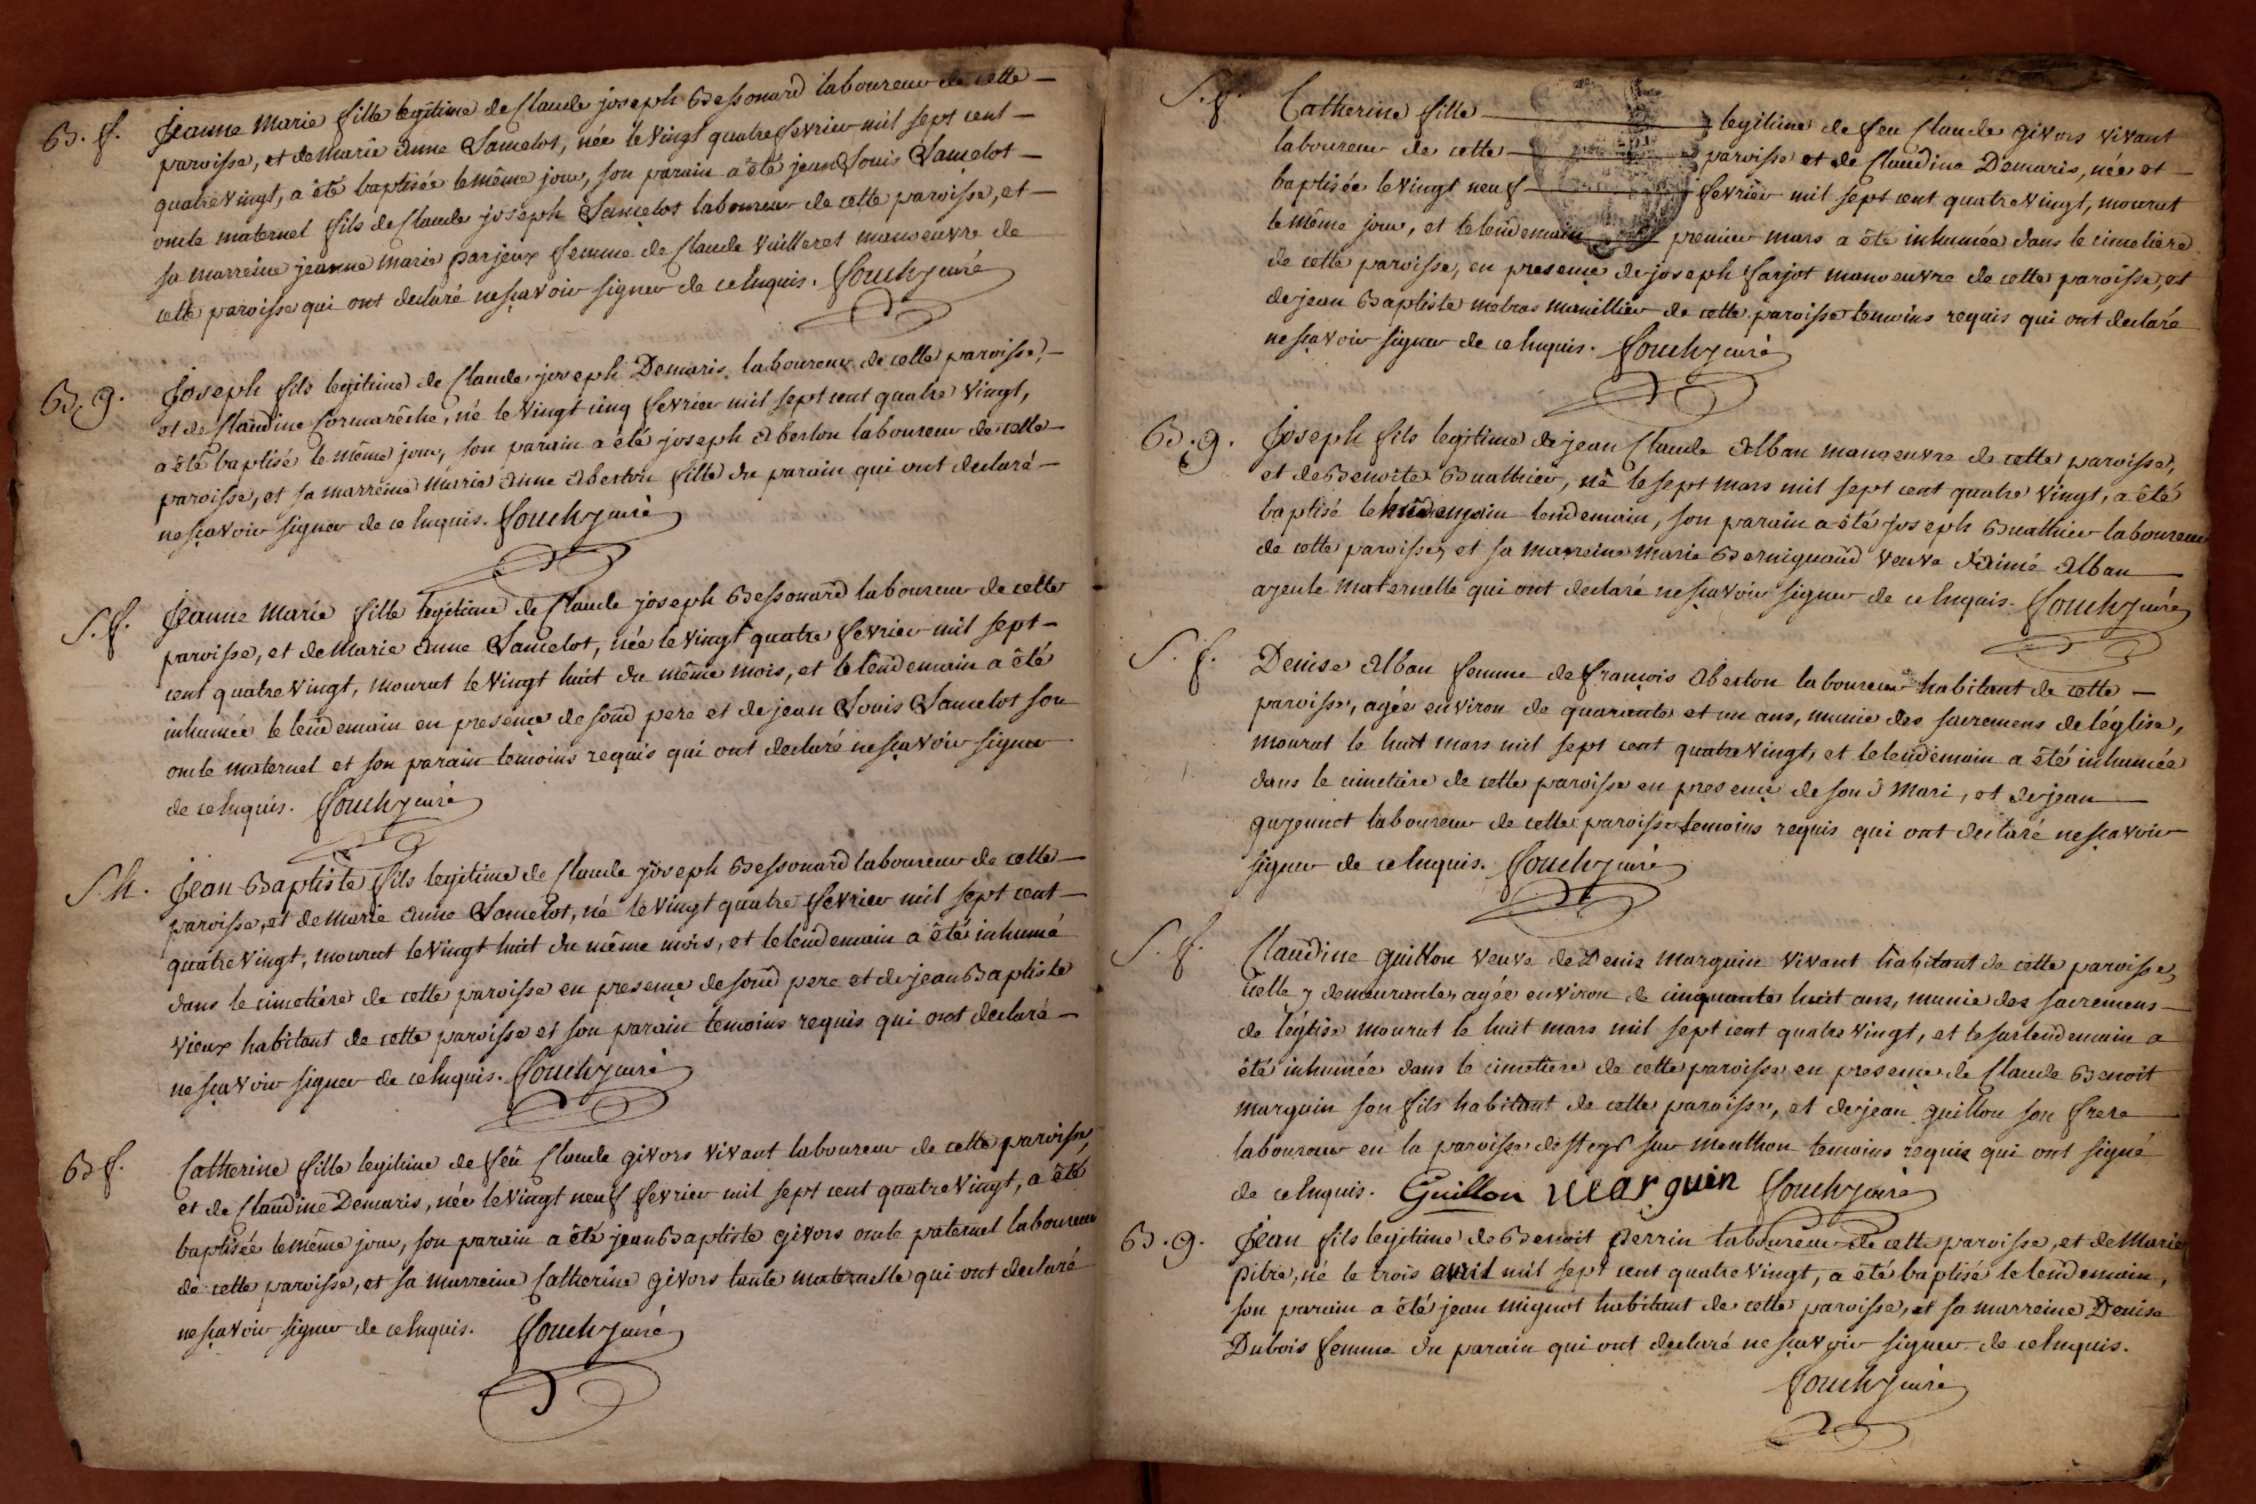 B. f. Jeanne Marie fille legitime de Claude joseph Bessonard laboureur de cette
paroisse, et de Marie Anne Lamelot, née le vingt quatre fevrier mil sept cent
quatre vingt, a été baptisée le même jour, son parain a été jean Louis Lamelot
oncle maternel fils de Claude joseph Lamelot laboureur de cette paroisse, et
sa marreine jeanne marie parjeux femme de Claude Vuilleret manoeuvre de
cette paroisse qui ont declaré ne sçavoir signer de ce enquis. Fouchy curé
B. g. Joseph fils legitime de Claude joseph Demaris laboureur de cette paroisse,
et de Claudine Cormarêche, né le vingt cinq fevrier mil sept cent quatre vingt,
a été baptisé le même jour, son parain a été joseph Aberlon laboureur de cette
paroisse, et sa marreine marie Anne Aberlon fille du parain qui ont declaré
ne sçavoir signer de ce enquis. Fouchy curé
S. f. Jeanne Marie fille legitime de Claude joseph Bessonard laboureur de cette
paroisse, et de Marie Anne Lamelot, née le vingt quatre fevrier mil sept
cent quatre vingt, mourut le vingt huit du même mois, et le lendemain a été
inhumée le lendemain en presence de soud pere et de jean Louis Lamelot son
oncle maternel et son parain temoins requis qui ont declaré ne sçavoir signer
de ce enquis. Fouchy curé
S. h. Jean Baptiste fils legitime de Claude joseph Bessonard laboureur de cette
paroisse, et de marie Anne Lamelot, né le vingt quatre fevrier mil sept cent
quatre vingt, mourut le vingt huit du même mois, et le lendemain a été inhumé
dans le cimetiere de cette paroisse en presence de soud pere et de jean Baptiste
vieux habitant de cette paroisse et son parain temoins requis qui ont declaré
ne sçavoir signer de ce enquis. Fouchy curé
B f. Catherine fille legitime de feu Claude givors vivant laboureur de cette paroisse,
et de Claudine Demaris, née le vingt neuf fevrier mil sept cent quatre vingt, a été
baptisée le même jour, son parain a été jean Baptiste givors oncle paternel laboureur
de cette paroisse, et sa marreine Catherine givors tante maternelle qui ont declaré
ne sçavoir signer de ce enquis. Fouchy curé
S. f. Catherine fille legitime de feu Claude givors vivant
laboureur de cette paroisse et de Claudine Demaris, née et
baptisée le vingt neuf fevrier mil sept cent quatre vingt, mourut
le même jour, et le lendemain premier mars a été inhumée dans le cimetiere
de cette paroisse, en presence de joseph farjot manoeuvre de cette paroisse, et
de jean Baptiste metras marillier de cette paroisse temoins requis qui ont declaré
ne sçavoir signer de ce enquis. Fouchy curé
B. g. Joseph fils legitime de jean Claude Alban manoeuvre de cette paroisse,
et de Benoite Buathier, né le sept mars mil sept cent quatre vingt, a été
baptisé le lendemain, son parain a été joseph Buathier laboureur
de cette paroisse, et sa marreine Marie Bernignaud veuve d'aimé Alban
ayeule maternelle qui ont declaré ne sçavoir signer de ce enquis. Fouchy curé
S. f. Denise Alban femme de françois Aberlon laboureur habitant de cette
paroisse, agée environ de quarante et un ans, munie des sacremens de l'église,
mourut le huit mars mil sept cent quatre vingt, et le lendemain a été inhumée
dans le cimetiere de cette paroisse en presence de son d mari, et de jean
guyennot laboureur de cette paroisse temoins requis qui ont declaré ne sçavoir
signer de ce enquis. Fouchy curé
S. f. Claudine guillon veuve de Denis marguin vivant habitant de cette paroisse,
celle y demeurante, agée environ de cinquante huit ans, munie des sacremens
de l'église mourut le huit mars mil sept cent quatre vingt, et le surlendemain a
été inhumée dans le cimetiere de cette paroisse en presence de Claude Benoit
marguin son fils habitant de cette paroisse, et de jean guillon son frere
laboureur en la paroisse de st Cyr sur menthon temoins requis qui ont signé
de ce enquis. Guillon Marguin Fouchy curé
B. g. Jean fils legitime de Benoit Perrin laboureur de cette paroisse, et de Marie
pitre, né le trois avril mil sept cent quatre vingt, a été baptisé le lendemain,
son parain a été jean mignot habitant de cette paroisse, et sa marreine Denise
Dubois femme du parain qui ont declaré ne sçavoir signer de ce enquis.
Fouchy curé